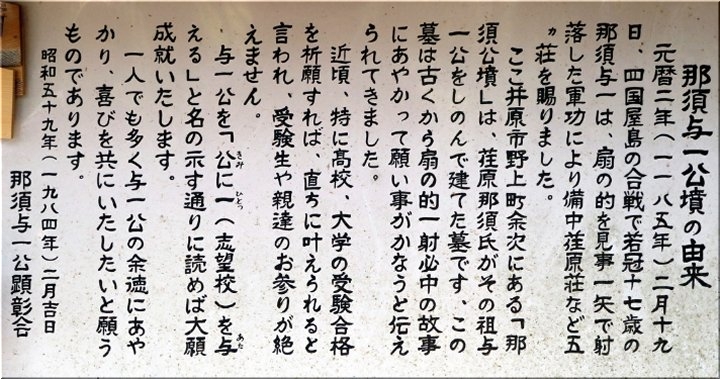 那須与一公墳の由来
元暦二年(一一八五年)二月十九
日、四国屋島の合戦で若冠十七歳の
那須与一は、扇の的を見事一矢で射
落した軍功により備中荏原荘など五
ヵ荘を賜りました。
ここ井原市野上町余次にある「那
須公墳」は、荏原那須氏がその祖与
一公をしのんで建てた墓です、この
墓は古くから扇の的一射必中の故事
にあやかって願い事がかなうと伝え
られてきました。
近頃、特に高校、大学の受験合格
を祈願すれば、直ちに叶えられると
言われ、受験生や親達のお参りが絶
えません。
与一公を「公に一(志望校)を与
きみ ひとつ あた
える」と名の示す通りに読めば大願
成就いたします。
一人でも多く与一公の余徳にあや
かり、喜びを共にいたしたいと願う
ものであります。
昭和五十九年(一九八四年)二月吉日
那須与一公顕彰会